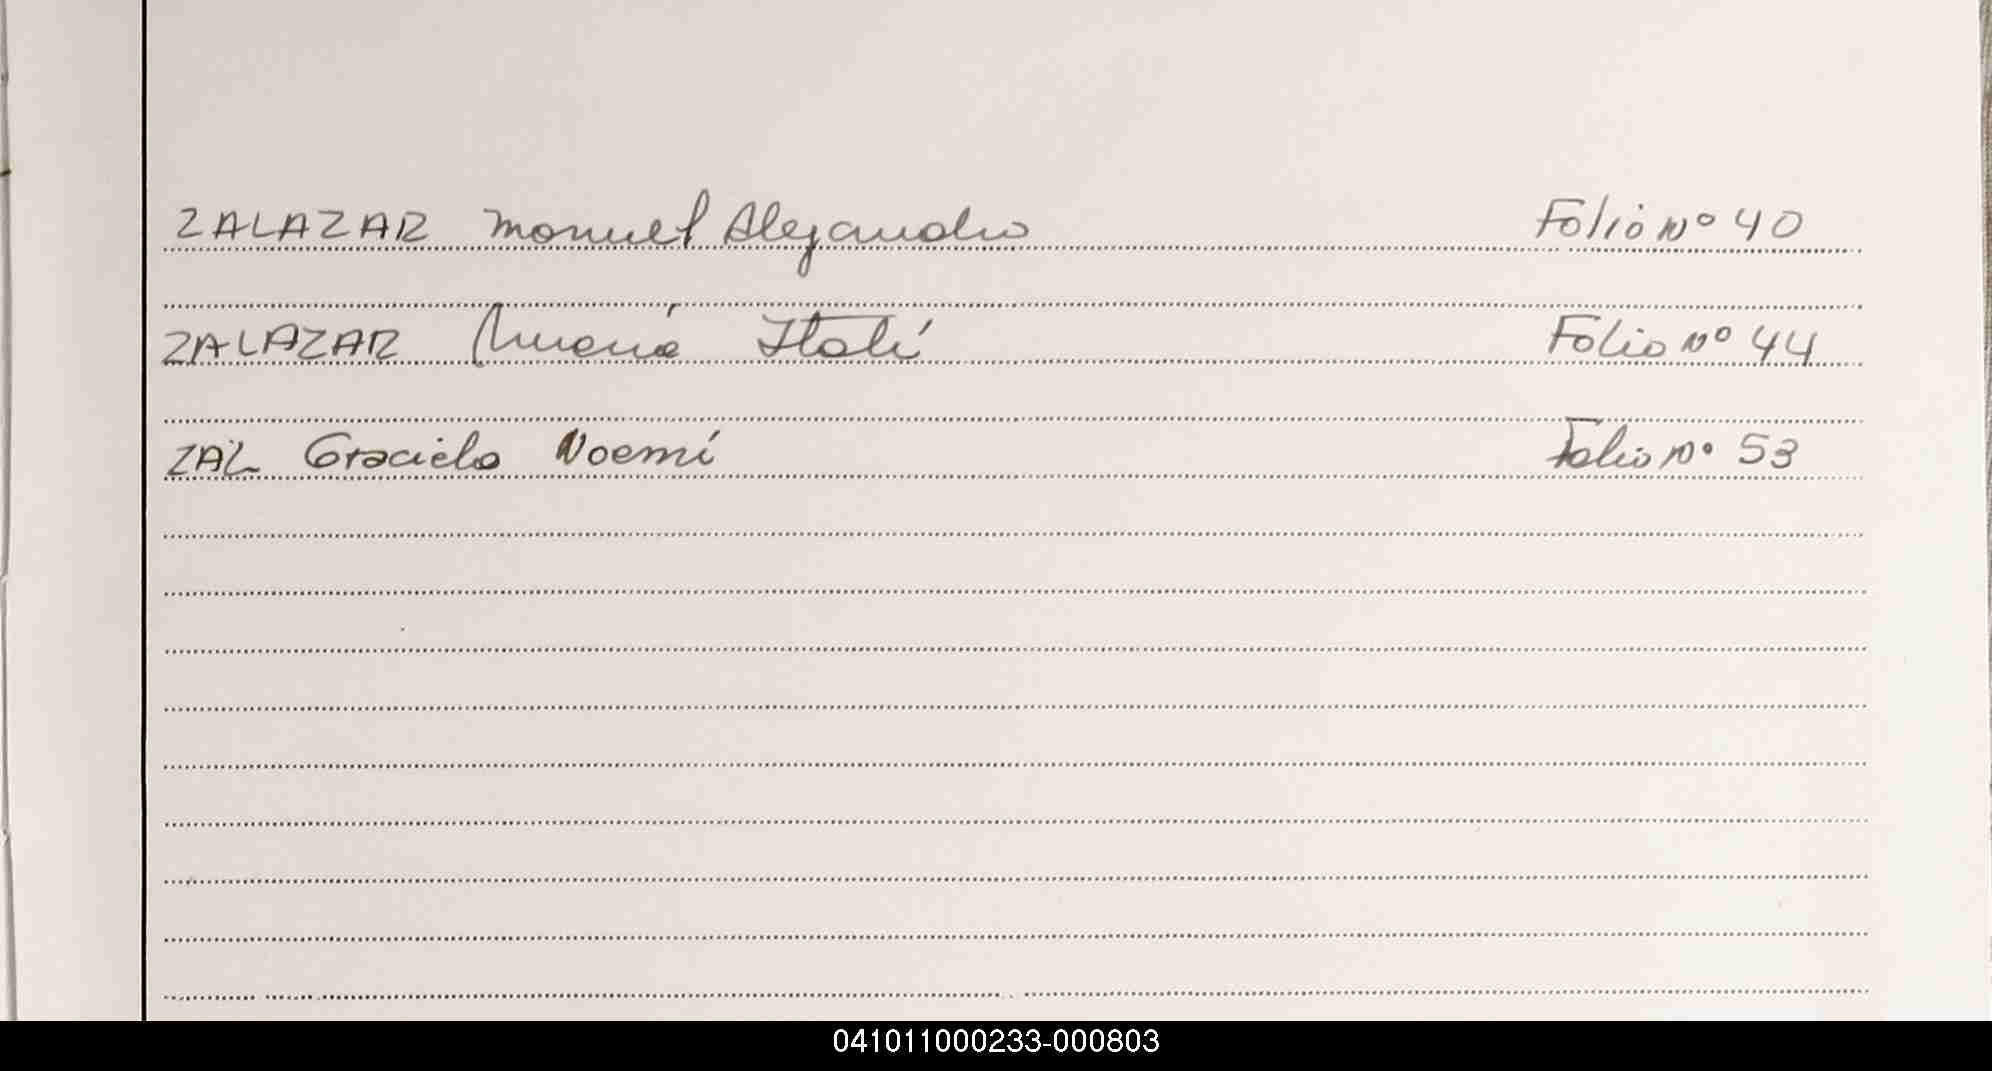 ZALAZAR Manuel Alejandro Folio Nº 40
ZALAZAR Itatí Folio Nº 44
ZAL Graciela Noemí Folio Nº 53
041011000233-000803